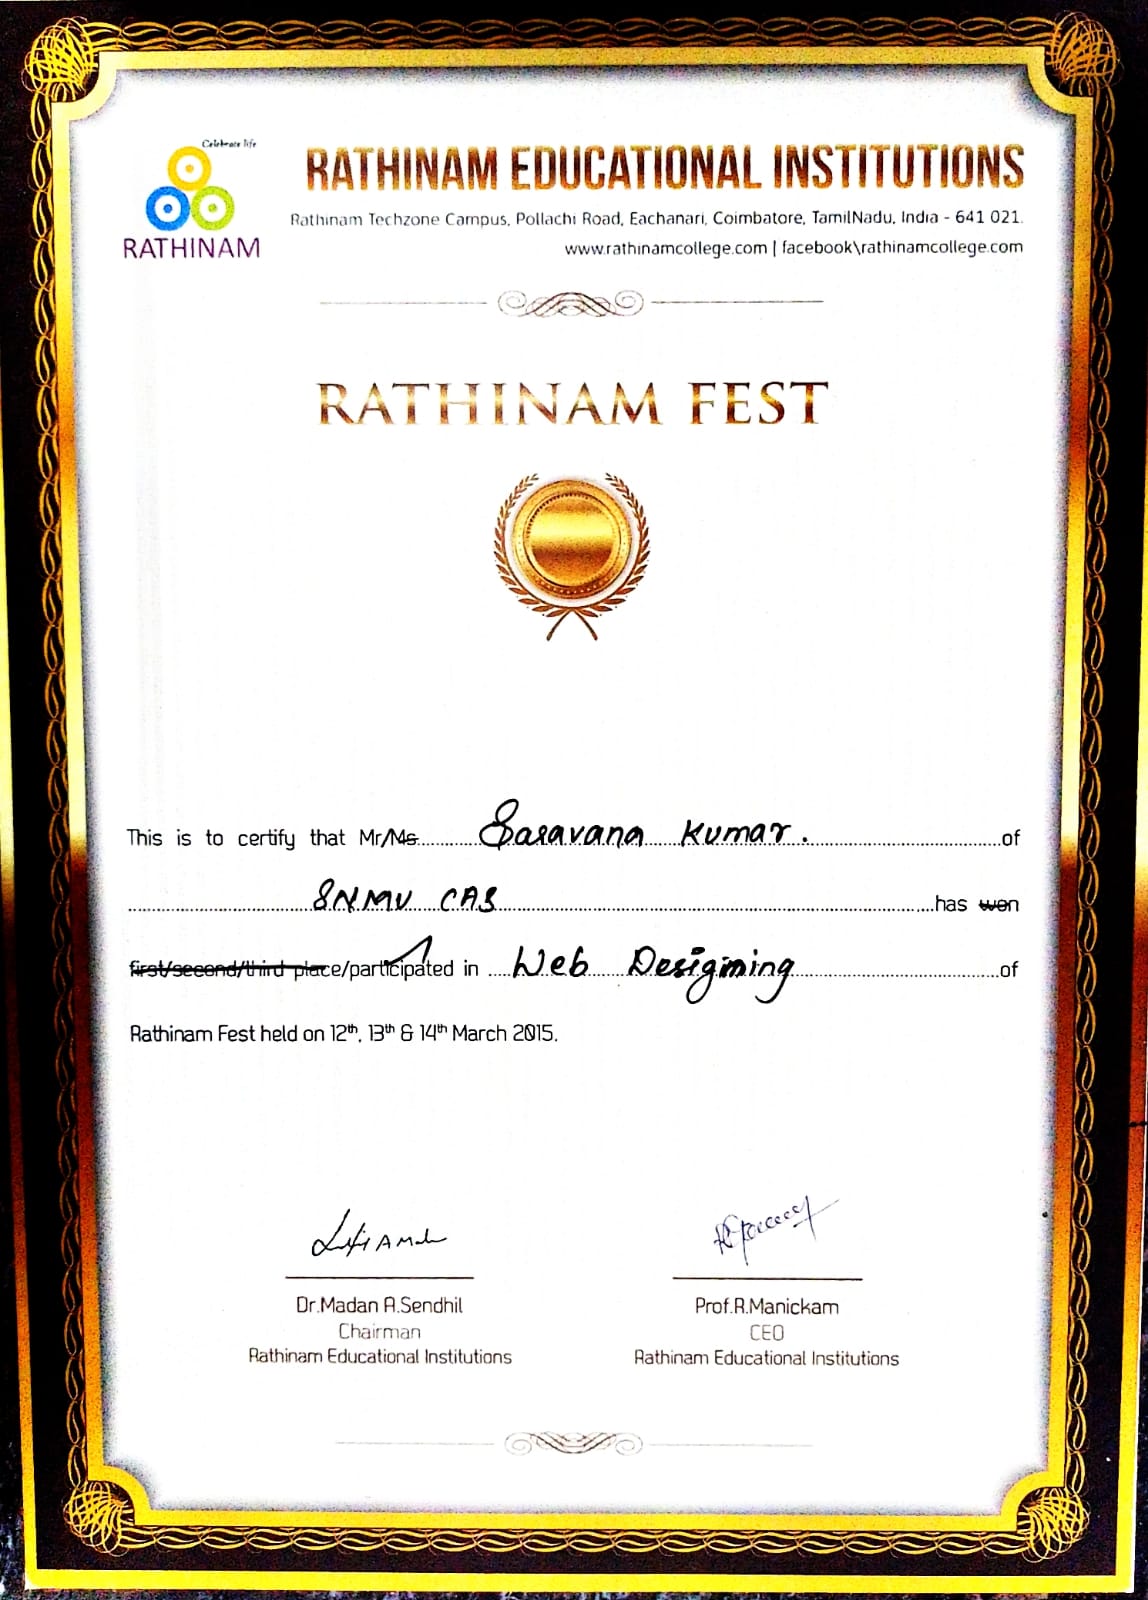 Celebrate life
RATHINAM
RATHINAM EDUCATIONAL INSTITUTIONS
Rathinam Techzone Campus, Pollachi Road, Eachanari, Coimbatore, TamilNadu, India - 641 021.
www.rathinamcollege.com | facebook\rathinamcollege.com
RATHINAM FEST
This is to certify that Mr/Ms. Saravana Kumar. of
SNMV CAS has won
first/second/third place/participated in Web Desigining of
Rathinam Fest held on 12th, 13th & 14th March 2015.
Dr.Madan A.Sendhil
Chairman
Rathinam Educational Institutions
Prof.R.Manickam
CEO
Rathinam Educational Institutions